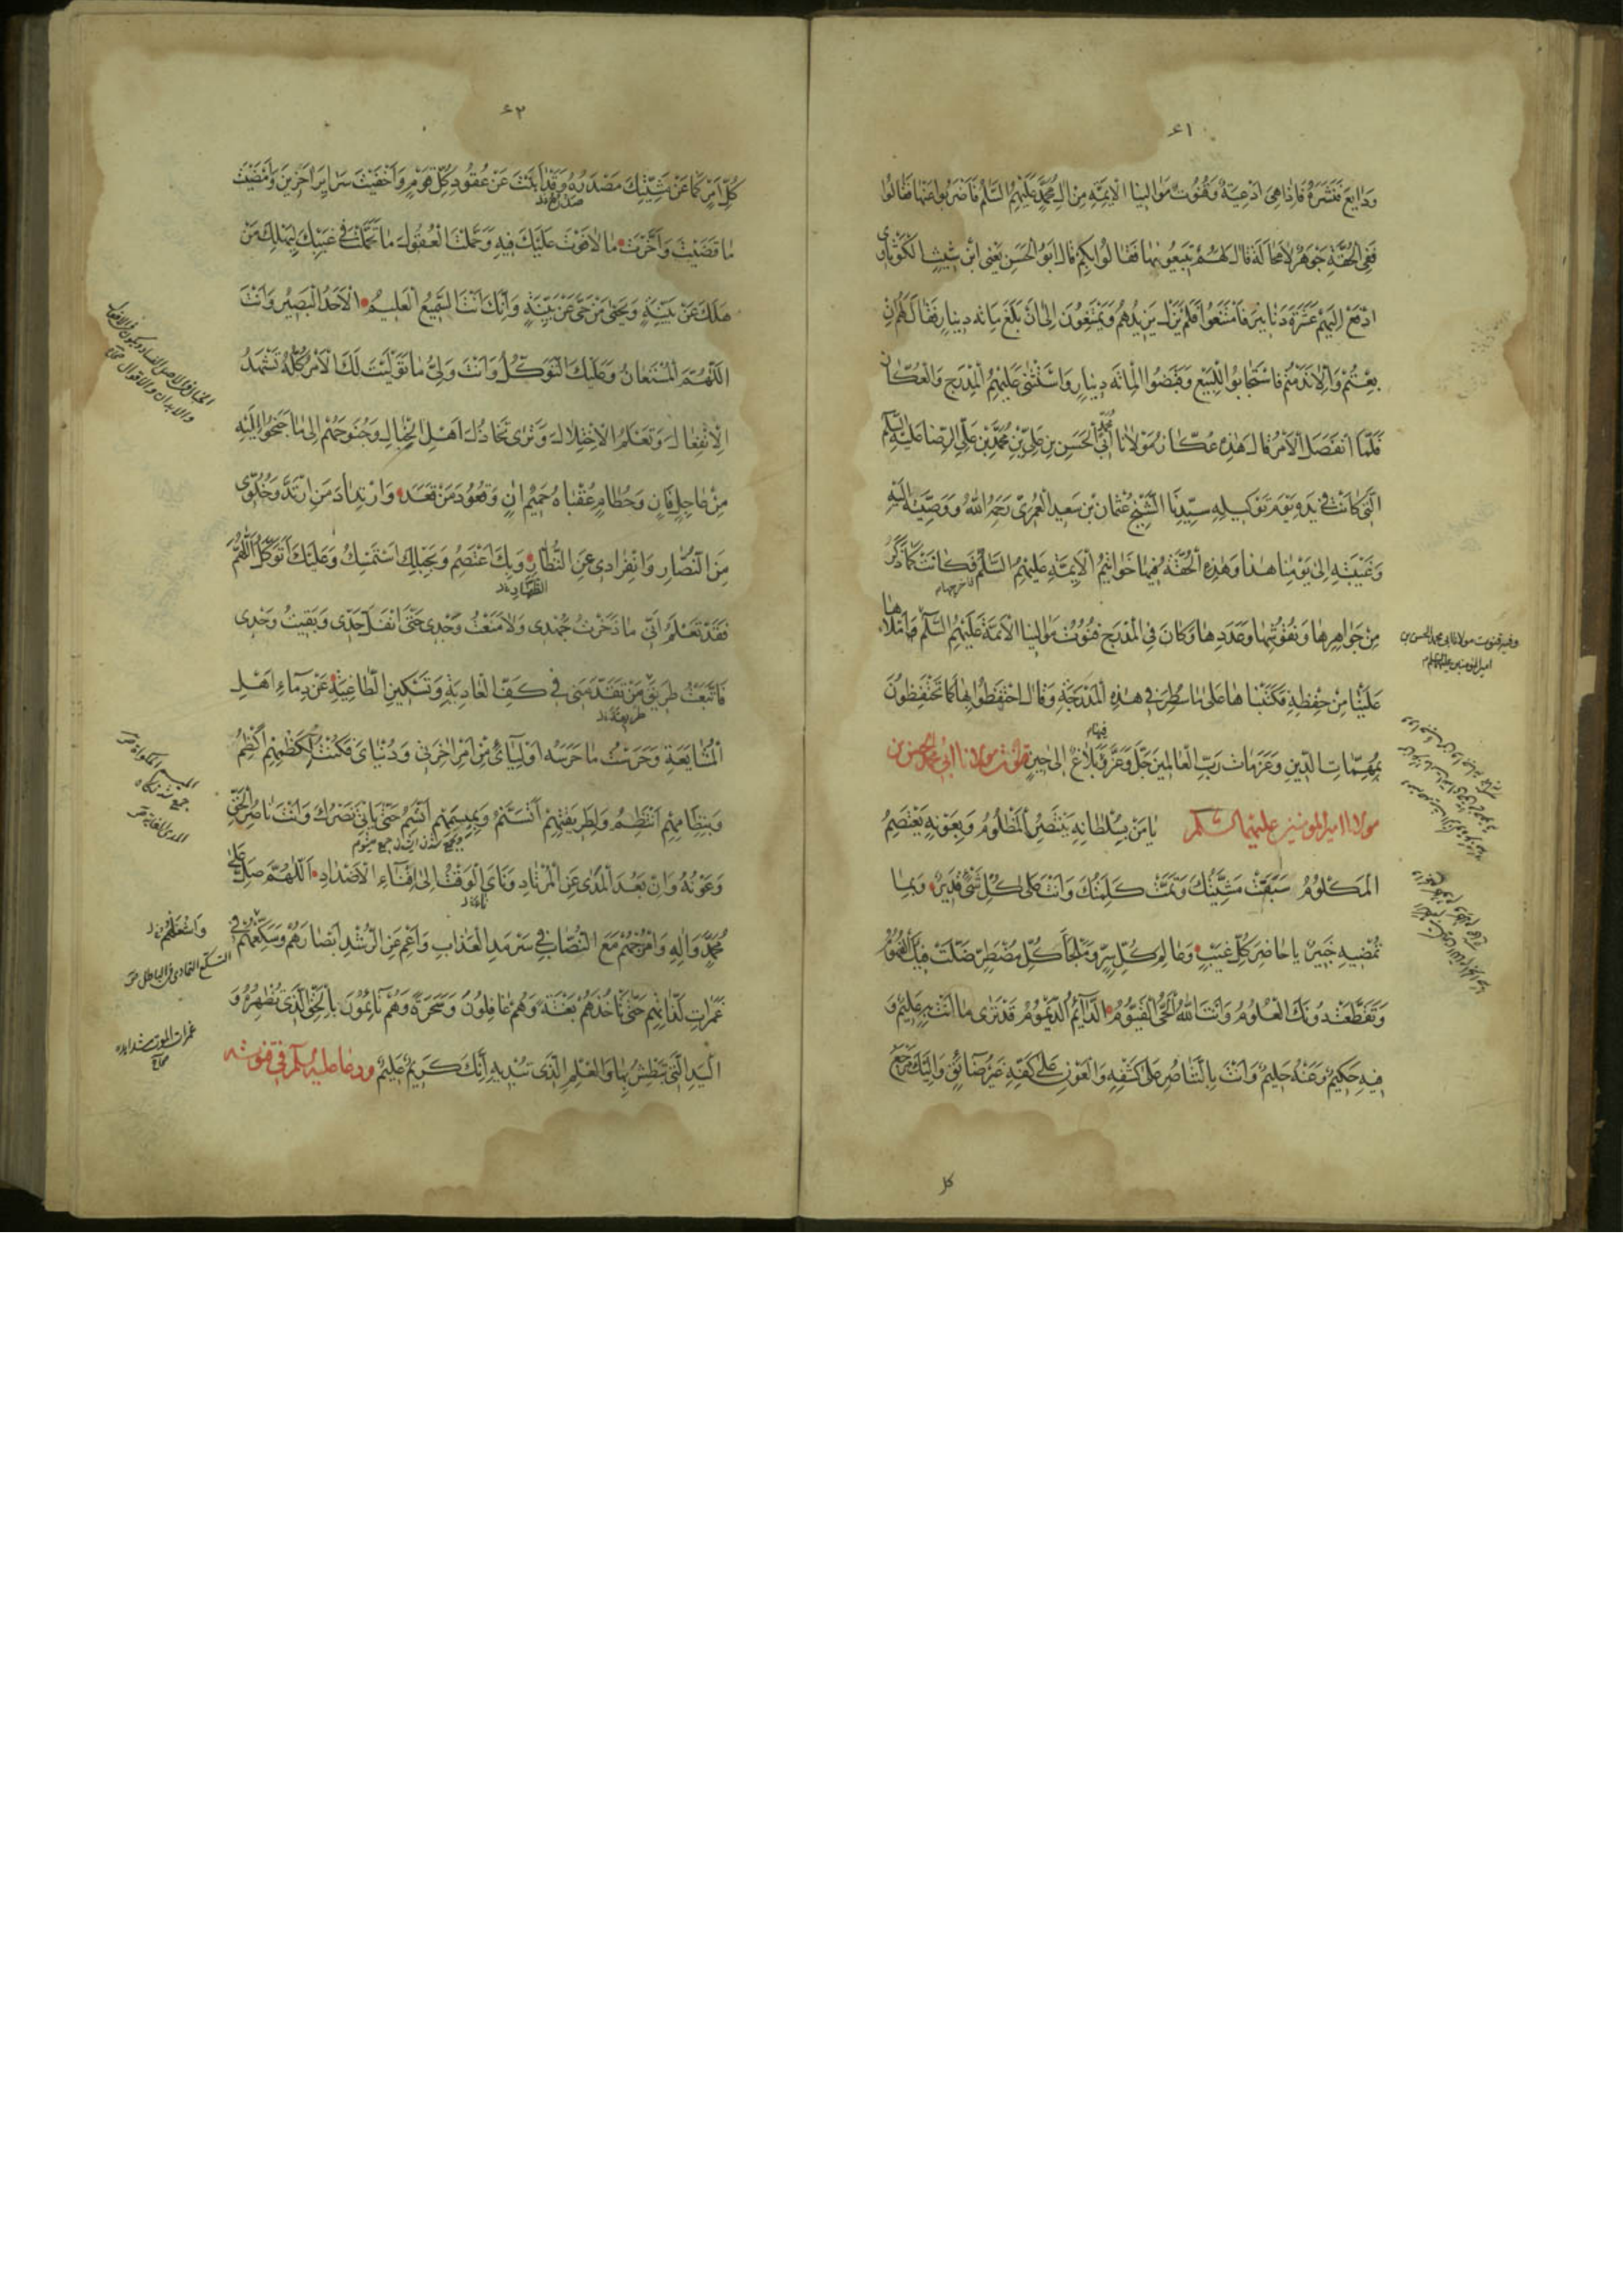 ٤١
ودايع فنشره فاذا هى ادعية وقنوت موالينا الائمة من ال محمد عليهم السلم فاضربوا عنها فقالوا
ففى الحقة جوهر لا محالة قال لهم تبيعونها فقالوا بكم قال ابو الحسن يعنى ابن شيث الكوثاوى
ادفع اليهم عشرة دنانير فامتنعوا فلم يزل يزيدهم ويمتنعون الى ان بلغ مائة دينار فقال لهم ان
بعتم والا ندمتم فاستجابوا للبيع وقبضوا المائة دينار واستثنى عليهم المدرج والعكاز
فلما انفصل الامر قال هذه عكاز مولانا ابى محمد الحسن بن على بن محمد بن على الرضا عليه السلم
التى كانت فى يده يوم توكيله سيدنا الشيخ عثمان بن سعيد العمرى رحمه الله ووصيته اليه
وغيبته الى يومنا هذا وهذه الحقة فيها خواتيم الائمة عليهم السلم فكانت كما ذكر
فاخرجها
من جواهرها ونقوشها وعددها وكان فى المدرج قنوت موالينا الائمة عليهم السلم واملاها
وفيه قنوت مولانا ابى محمد الحسن بن
امير المؤمنين عليهما السلم
علينا من حفظه فكتبناها على ما سطر فى هذه المدرجة وقال احتفظوا بها كما تحتفظون
بمهمات الدين وعزمات رب العالمين جل وعز وفيها بلاغ الى حين قنوت مولانا ابى محمد الحسن بن
مولانا امير المومنين عليهما السلم يا من بسلطانه ينتصر المظلوم وبعونه يعتصم
المكلوم سبقت مشيتك وتمت كلمتك وانت على كل شئ قدير وبما
تمضيه خبير يا حاضر كل غيب وعالم كل سر وملجأ كل مضطر ضلت فيك الفهوم
وتقطعت دونك العلوم وانت الله الحى القيوم الدائم الديموم قد ترى ما انت به عليم و
فيه حكيم وعنه حليم وانت بالتناصر على كشفه والعون على كفه غير ضائق واليك مرجع
كل
٤٢
كل امر كما عن مشيتك مصدره وقد ابنت عن عقود كل قوم واخفيت سراير اخرين وامضيت
ما قضيت واخرت ما لا فوت عليك فيه وحملت العقول ما تحملت فى غيبك ليهلك من
هلك عن بينة ويحيى من حى عن بينة وانك انت السميع العليم الاحد البصير وانت
اللهم المستعان وعليك التوكل وانت ولى ما توليت لك الامر كله تشهد
الانفعال وتعلم الاختلال وترى تخاذل اهل الخبال وجنوحهم الى ما جنحوا اليه
من عاجل فان وحطام عقباه حميم ان وقعود من قعد وارتداد من ارتد وخلوى
من النصار وانفرادى عن الظهار وبك اعتصم وبحبلك استمسك وعليك اتوكل اللهم
فقد تعلم انى ما ذخرت جهدى ولا منعت وجدى حتى انفل حدى وبقيت وحدى
فاتبعت طريق من تقدمنى فى كف العادية وتسكين الطاغية عن دماء اهل
المشايعة وحرست ما حرسه اوليائى من امر اخرتى ودنياى فكنت ككظمهم اكظم
وبنظامهم انتظم ولطريقتهم اتسنم وبميسمهم اتسم حتى ياتى نصرك وانت ناصر الحق
وعونه وان بعد المدى عن المرتاد وناى الوقت الى افناء الاضداد اللهم صل على
محمد واله وامزجهم مع النصاب فى سرمد العذاب واعم عن الرشد ابصارهم وسكعهم فى
غمرات لذاتهم حتى تاخذهم بغتة وهم غافلون وسحرة وهم نائمون بالحق الذى تظهره و
اليد التى تبطش بها والعلم الذى تبديه انك كريم عليم ودعا عليه السلم فى قنوته